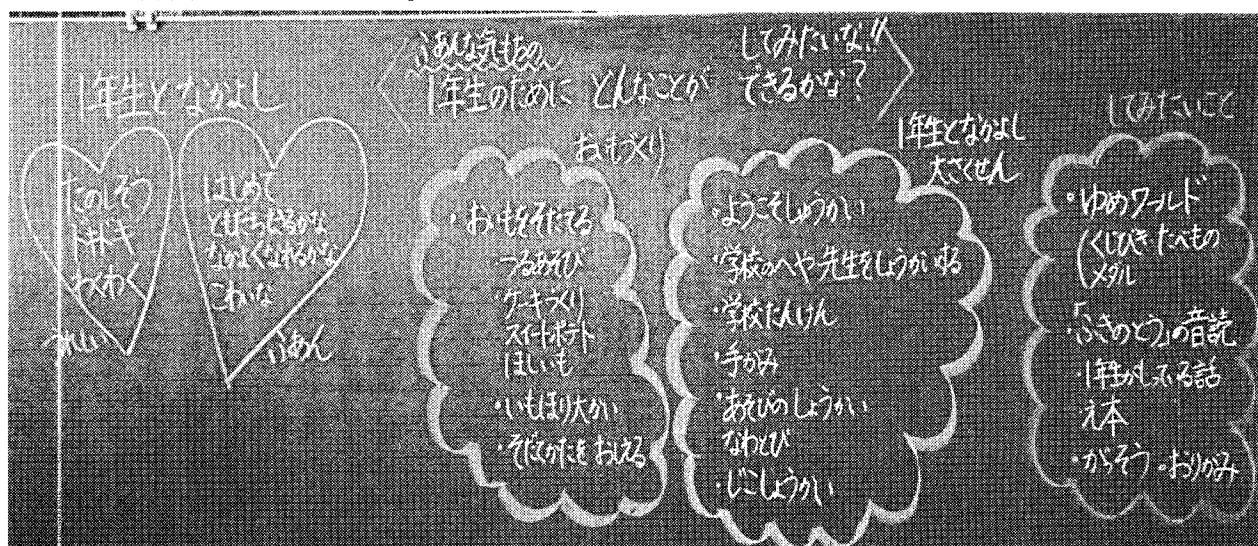 1年生となかよし
たのしそう
ドキドキ
わくわく
うれしい
はじめて
ともだちできるかな
なかよくなれるかな
こわいな
ふあん
ふあんな気もちの
1年生のために どんなことが
してみたいな!!
できるかな?
おいもづくり
・おいもをそだてる
つるあそび
・ケーキづくり
スイートポテト
ほしいも
・いもほり大かい
・そだてかたを おしえる
1年生となかよし
大さくせん
・ようこそしゅうかい
・学校のへや・先生をしょうかいする
・学校たんけん
・手がみ
・あそびのしょうかい
なわとび
・じこしょうかい
してみたいこと
・ゆめワールド
(くじびき・たべもの
メダル
・「ふきのとう」の音読
・1年生がしっている話
え本
・がっそう ・おりがみ